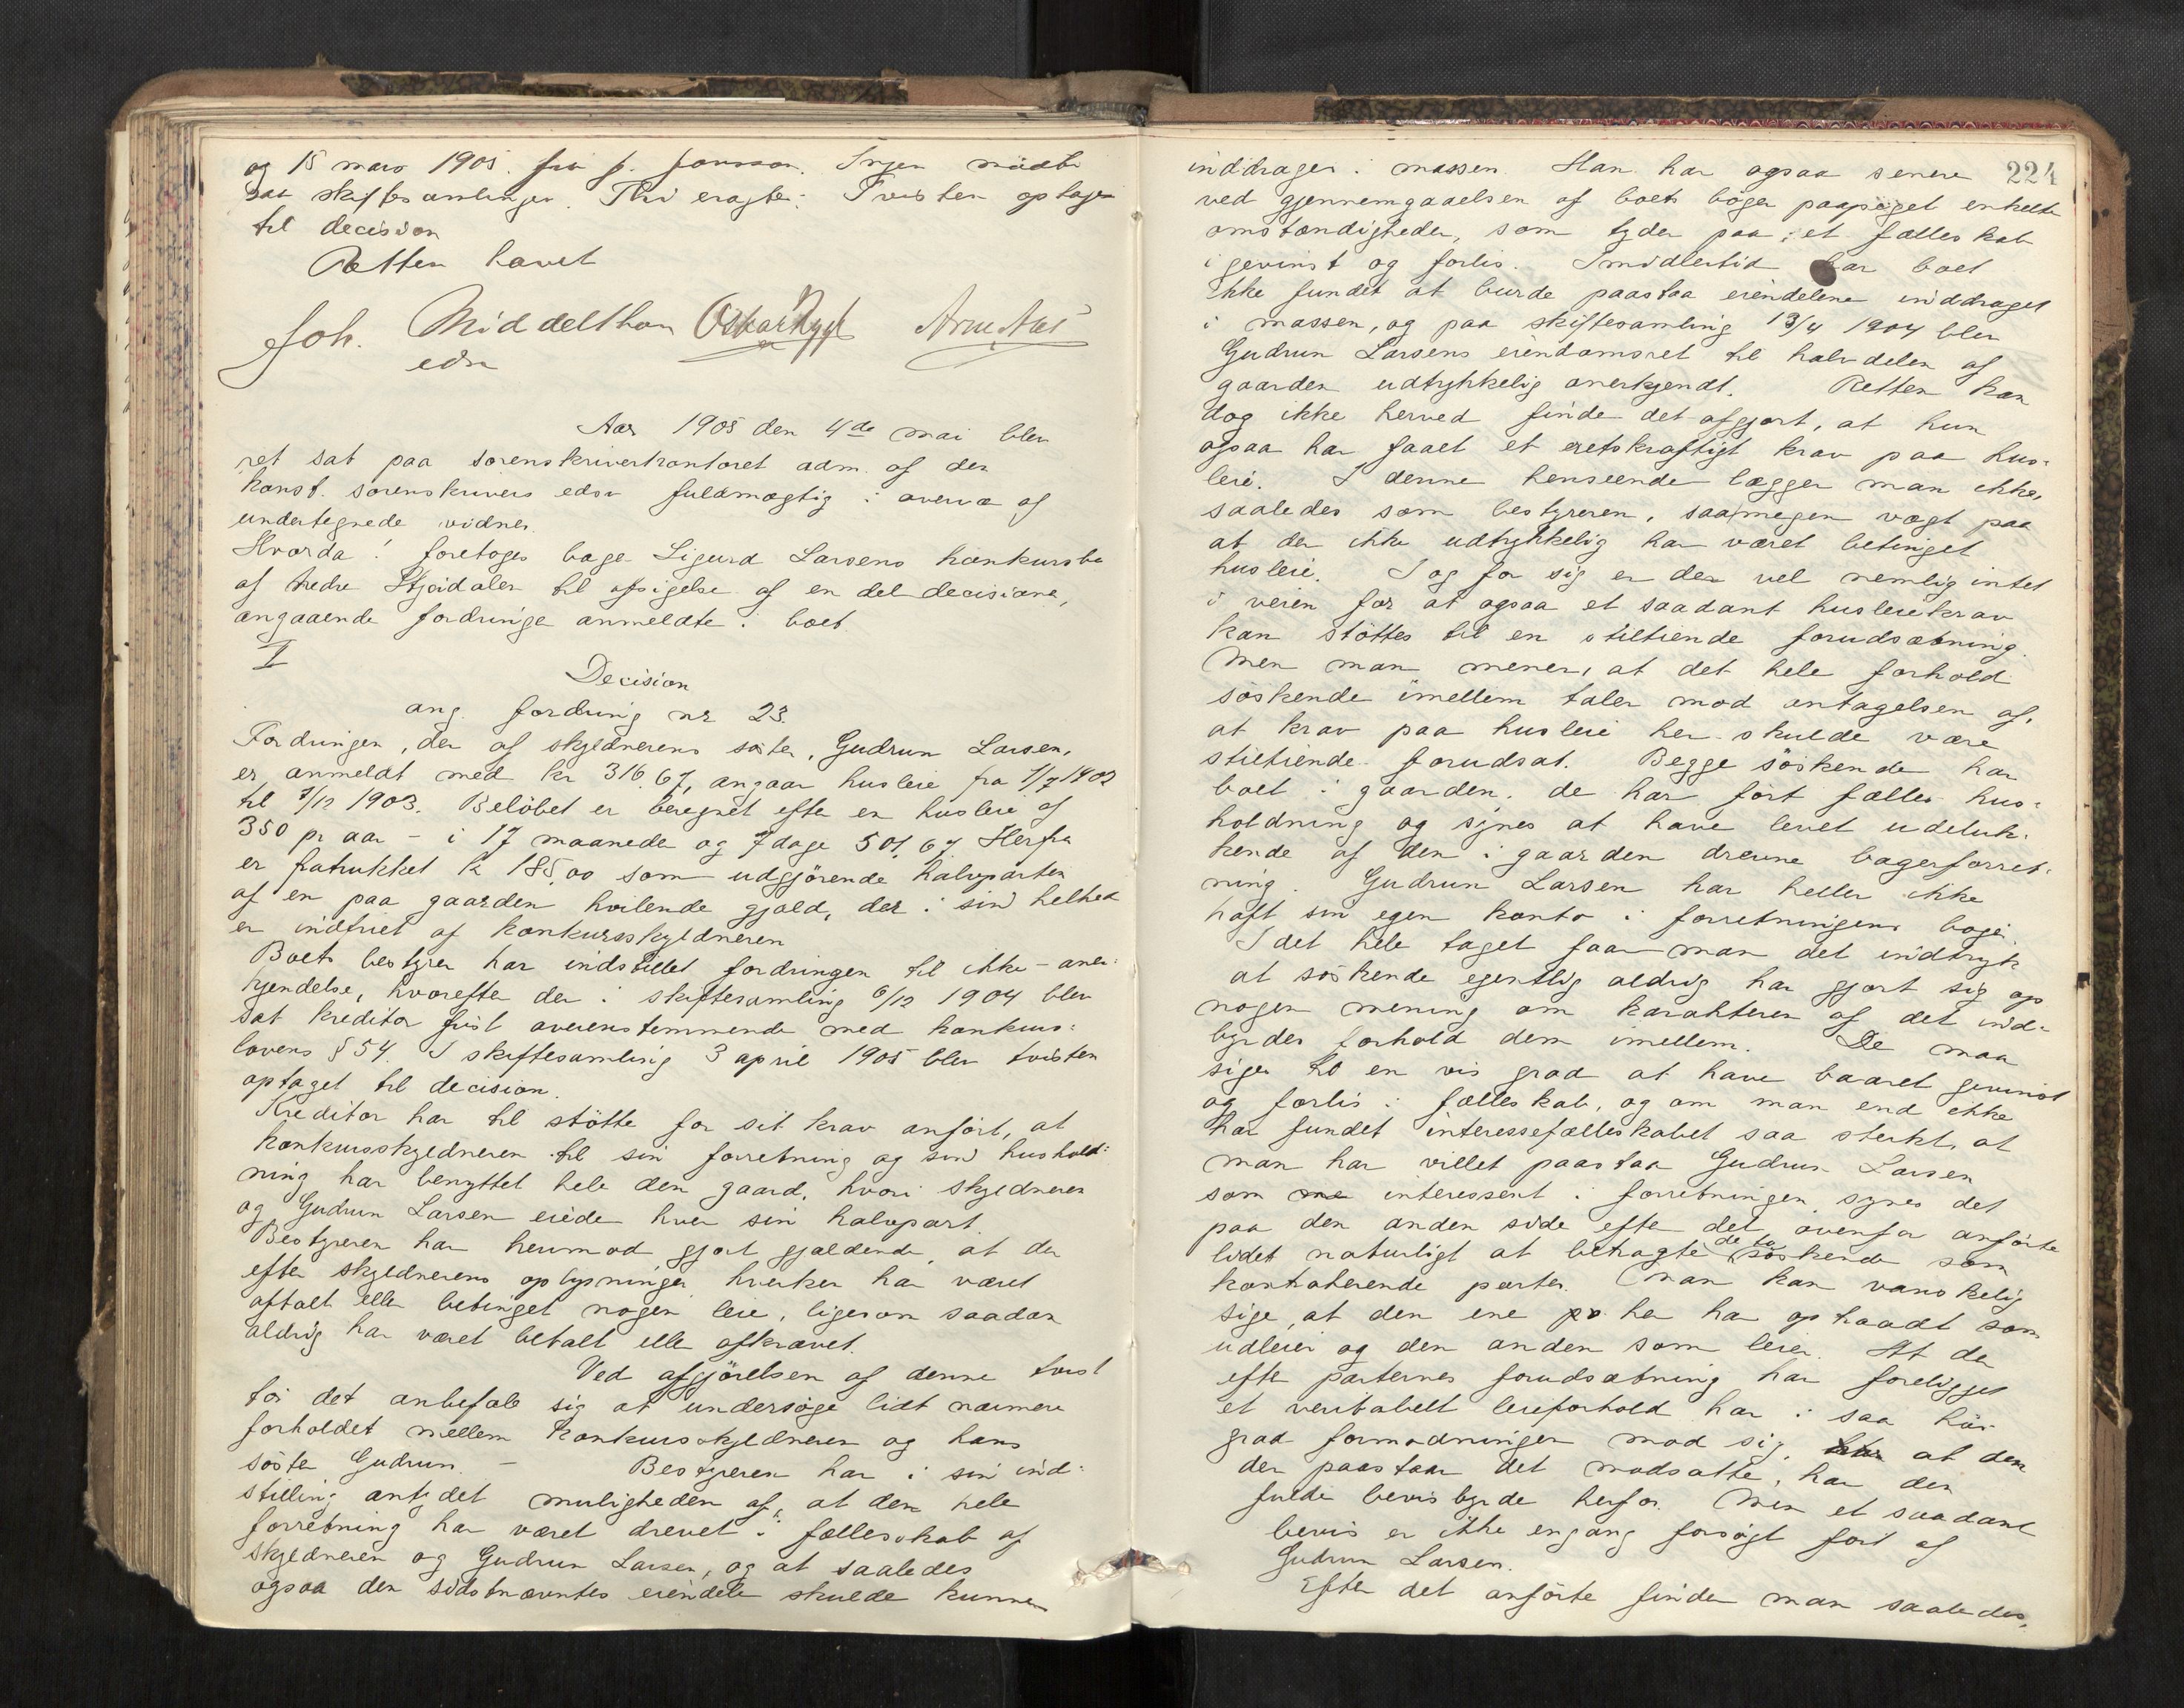 og 15 mars 1905. fra J. Jonsson. Ingen mödte
saa skiftesamlingen. Thi eragtes: Tvisten optages
til decision
Retten hævet
Joh. Middelthon Oskar Rygh Arne Aas
edsv
Aar 1905 den 4de mai blev
ret sat paa sorenskriverkontoret adm. af den
konst. sorenskrivers edsv fuldmægtig i overvær af
undertegnede vidner.
Hvorda! foretoges bager Sigurd Larsens konkursbo
af nedre Stjørdalen til afsigelse af en del decisioner,
angaaende fordringer anmeldte i boet.
I
Decision
ang. fordring nr 23.
Fordringen, der af skyldnerens söster, Gudrun Larsen,
er anmeldt med kr 316.67, angaar husleie fra 1/7 1902
til 7/12 1903. Belöbet er beregnet efter en husleie af
350 pr aar - i 17 maaneder og 7 dage 501,67 Herfra
er fratrukket kr 185,00 som udgjörende halvparten
af en paa gaarden hvilende gjæld, der i sin helhed
er indfriet af konkursskyldneren
Boets bestyrer har indstillet fordringen til ikke-aner-
kjendelse, hvorefter der i skiftesamling 6/12 1904 blev
sat kreditor frist overensstemmende med konkurs-
lovens § 54. I skiftesamling 3 april 1905 blev tvisten
optaget til decision.
Kreditor har til stötte for sit krav anfört, at
konkursskyldneren til sin forretning og sin hushold-
ning har benyttet hele den gaard, hvori skyldneren
og Gudrun Larsen eiede hver sin halvpart
Bestyreren har herimod gjort gjældende, at der
efter skyldnerens oplysninger hverken har været
aftalt eller betinget nogen leie, ligesom saadan
aldrig har været betalt eller afkrævet.
Ved afgjörelsen af denne tvist
tör det anbefale sig at undersöge lidt nærmere
forholdet mellem konkursskyldneren og hans
söster Gudrun. - Bestyreren har i sin ind-
stilling antydet muligheden af, at den hele
forretning har været drevet i fællesskab af
skyldneren og Gudrun Larsen, og at saaledes
ogsaa den sidstnævntes eiendele skulde kunne
224
inddrages i massen. Han har ogsaa senere
ved gjennemgaaelsen af boets böger paapeget enkelte
omstændigheder, som tyder paa et fælleskab
i gevinst og forlis. Imidlertid har boet
ikke fundet at burde paastaa eiendelene inddraget
i massen, og paa skiftesamling 13/4 1904 blev
Gudrun Larsens eiendomsret til halvdelen af
gaarden udtrykkelig anerkjendt. Retten kan
dog ikke herved finde det afgjort, at hun
ogsaa har faaet et retskraftigt krav paa hus-
leie. I denne henseende lægger man ikke,
saaledes som bestyreren, saa megen vægt paa
at der ikke udtrykkelig har været betinget
husleie. I og for sig er der vel nemlig intet
i veien for at ogsaa et saadant husleiekrav
kan stöttes til en stiltiende forudsætning.
Men man mener, at det hele forhold
söskende imellem taler mod antagelsen af,
at krav paa husleie her skulde være
stiltiende forudsat. Begge söskende har
boet i gaarden. de har fört fælles hus-
holdning og synes at have levet udeluk-
kende af den i gaarden drevne bagerforret-
ning. Gudrun Larsen har heller ikke
haft sin egen konto i forretningens böger.
I det hele taget faar man det indtryk
at söskende egentlig aldrig har gjort sig op
nogen mening om karakteren af det ind-
byrdes forhold dem imellem. De maa
siges til en vis grad at have baaret gevinst
og forlis i fælleskab, og om man end ikke
har fundet interessefælleskabet saa sterkt, at
man har villet paastaa Gudrun Larsen
som interessent i forretningen synes det
paa den anden side efter det ovenfor anförte
lidet naturligt at betragte de to söskende som
kontraherende parter. Man kan vanskelig
sige, at den ene her har optraadt som
udleier og den anden som leier. At der
efter parternes forudsætning har foreligget
et veritabelt leieforhold har i saa höi
grad formodningen mod sig, at den
der paastaar det modsatte, har den
fulde bevisbyrde herfor. Men et saadant
bevis er ikke engang forsögt fört af
Gudrun Larsen.
Efter det anförte finder man saaledes,